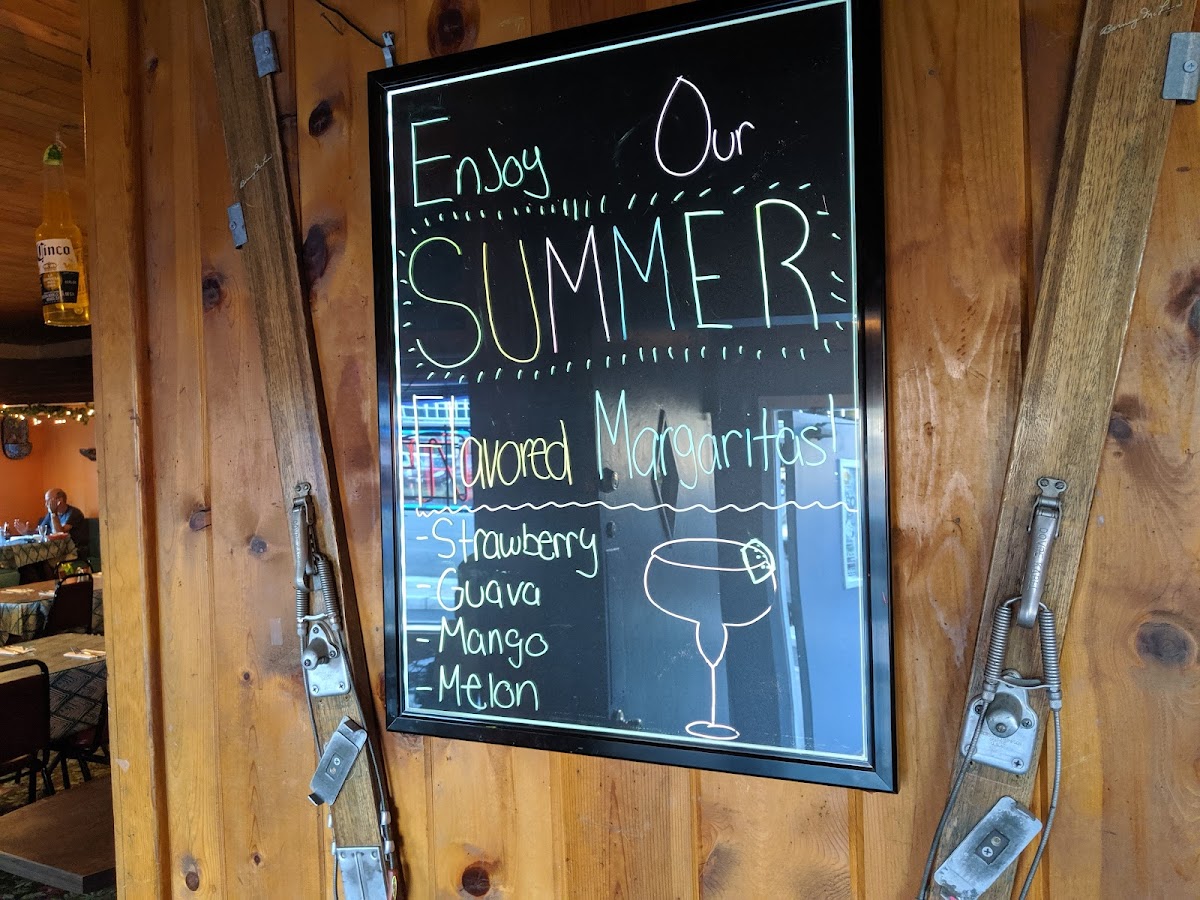 Enjoy Our
SUMMER
Flavored Margaritas!
- Strawberry
- Guava
- Mango
- Melon
Cinco